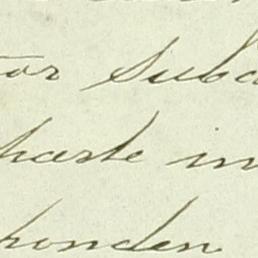 tor suba
harte in
honden